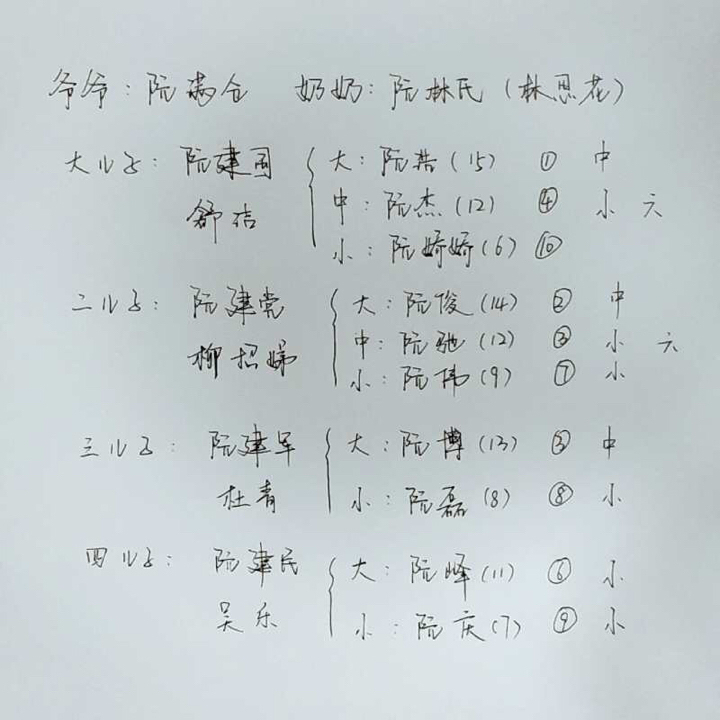 爷爷：阮满仓 奶奶：阮林氏（林恩花）
大儿子：阮建国 大：阮浩（15） ① 中
舒洁 中：阮杰（12） ④ 小 六
小：阮娇娇（6） ⑩
二儿子：阮建党 大：阮俊（14） ② 中
柳招娣 中：阮驰（12） ③ 小 六
小：阮伟（9） ⑦ 小
三儿子：阮建军 大：阮博（13） ③ 中
杜青 小：阮磊（8） ⑧ 小
四儿子：阮建民 大：阮峰（11） ⑥ 小
吴乐 小：阮庆（7） ⑨ 小